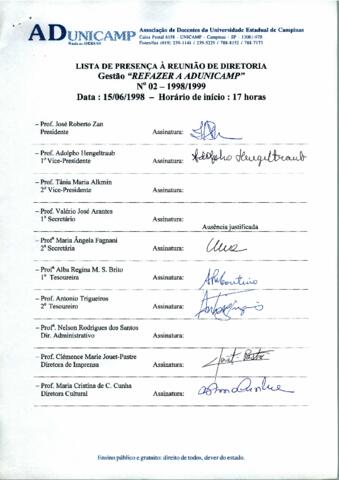 ADUNICAMP
Associação de Docentes da Universidade Estadual de Campinas
Caixa Postal 6158 - UNICAMP - Campinas - SP - 13081-970
LISTA DE PRESENÇA À REUNIÃO DE DIRETORIA
Gestão "REFAZER A ADUNICAMP"
Nº 02 – 1998/1999
Data : 15/06/1998 – Horário de início : 17 horas
– Prof. José Roberto Zan
Presidente Assinatura:
– Prof. Adolpho Hengeltraub Adolpho Hengeltraub
1º Vice-Presidente Assinatura:
– Prof. Tânia Maria Alkmin
2º Vice-Presidente Assinatura:
– Prof. Valério José Arantes
1º Secretário Assinatura:
Ausência justificada
– Profª Maria Ângela Fagnani
2ª Secretária Assinatura:
– Profª Alba Regina M. S. Brito
1ª Tesoureira Assinatura:
– Prof. Antonio Trigueiros
2º Tesoureiro Assinatura:
– Profª. Nelson Rodrigues dos Santos
Dir. Administrativo Assinatura:
– Prof. Clémence Marie Jouet-Pastre
Diretora de Imprensa Assinatura:
– Prof. Maria Cristina de C. Cunha
Diretora Cultural Assinatura:
Ensino público e gratuito: direito de todos, dever do estado.